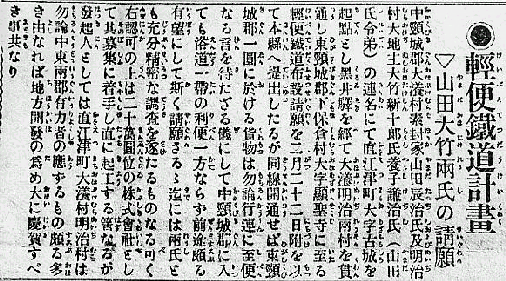 ●輕便鐵道計畫
▽山田大竹兩氏の請願
中頸城郡大瀁村素封家山田辰治氏及明治
村大地主大竹新十郎氏養子謙治氏(山田
氏令弟)の連名にて直江津町大字古城を
起點とし黑井驛を經て大瀁明治兩村を貫
通し東頸城郡下保倉村大字顯聖寺に至る
輕便鐵道布設請願を二月二十二日附を以
て本縣へ提出したるが同線開通せば東頸
城郡一圓に於ける貨物は勿論行運に至便
なる言を待たざる儀にして中頸城郡に入
ても沿道一帶の利便一方ならず前途頗る
有望にして斯く請願さるゝ迄には兩氏と
も充分精密な調査を遂たるものなる可く
右認可の上は二十萬圓位の株式會社とし
て其募集に着手し直に起工する筈なるが
發起人としては直江津町大瀁村明治村は
勿論中東兩郡有力者の應ずるもの頗る多
き由なれば地方開發の爲め大に慶賀すべ
き事共なり